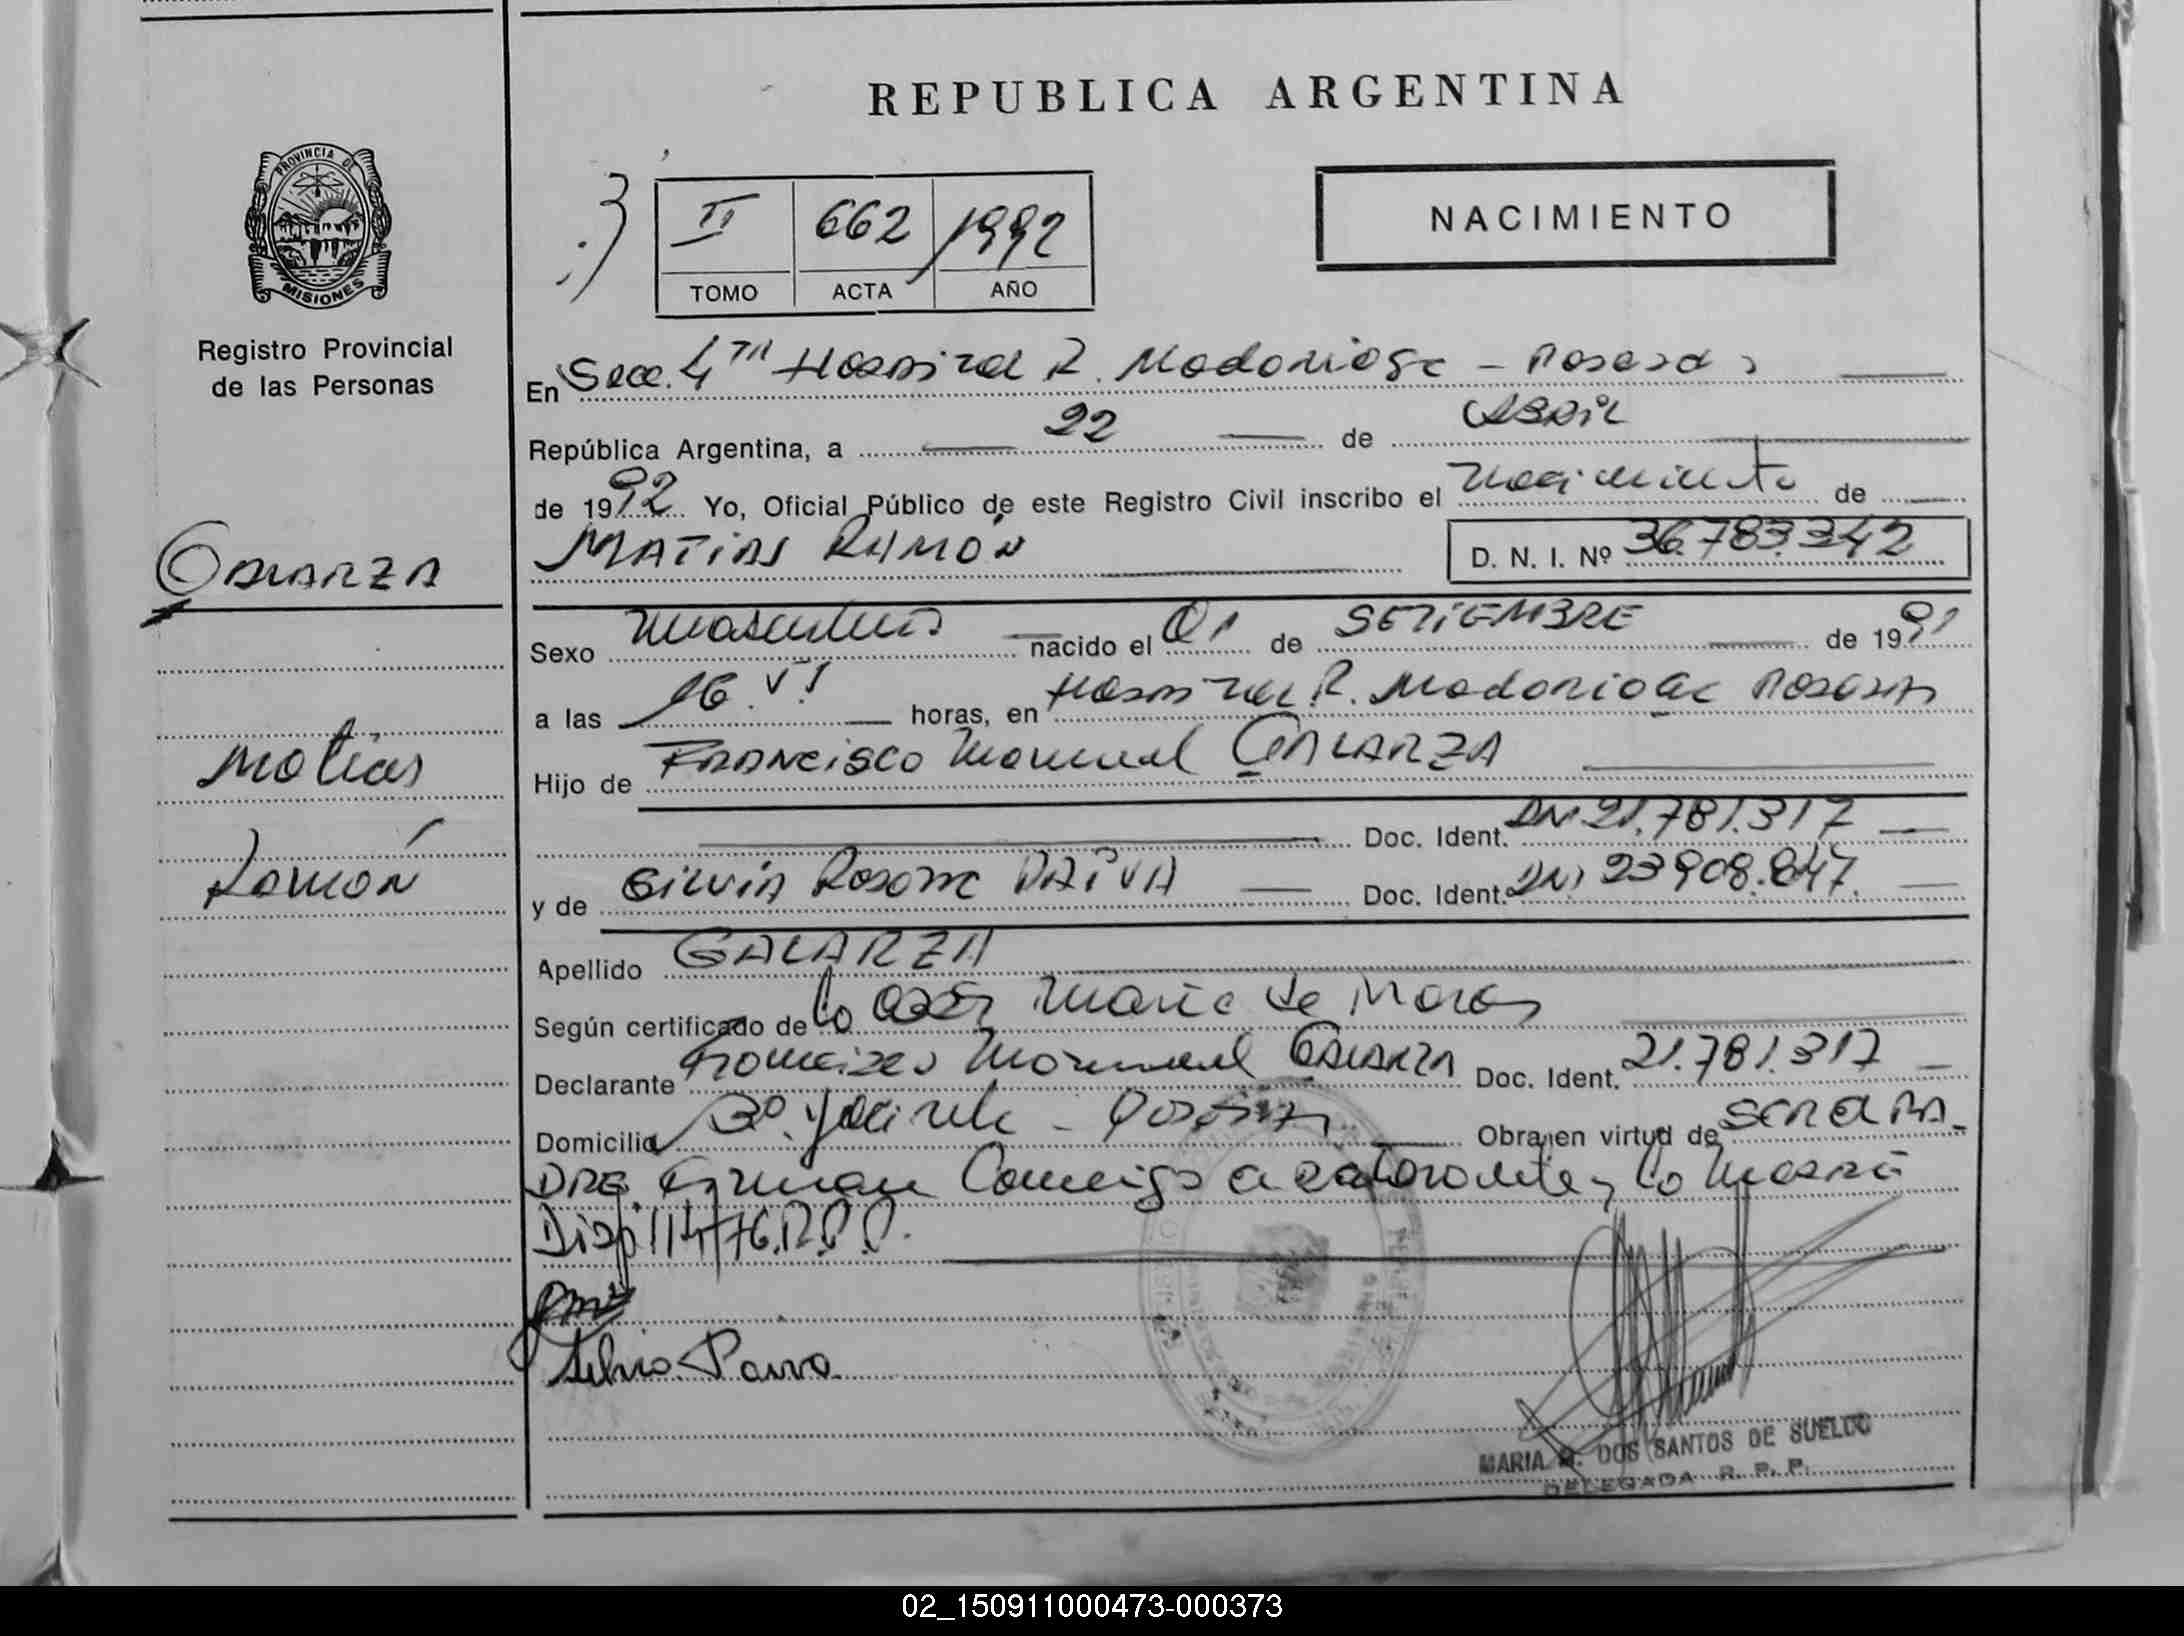 REPUBLICA ARGENTINA
PROVINCIA DE
MISIONES
Registro Provincial
de las Personas
II 662 1992
TOMO ACTA AÑO
NACIMIENTO
En Secc. 4ta Hospital R. Madariaga - Posadas
República Argentina, a 22 de Abril
de 1992 Yo, Oficial Público de este Registro Civil inscribo el nacimiento de
GALARZA
MATIAS RAMÓN D. N. I. Nº 36.783.342
Sexo masculino nacido el 01 de SETIEMBRE de 1991
a las 16. horas, en Hospital R. Madariaga Posadas
Matías
Hijo de FRANCISCO Manuel GALARZA
Doc. Ident. DNI 21.781.317
Ramón
y de SILVIA Rosana PAIVA Doc. Ident. DNI 23.908.847.
Apellido GALARZA
Según certificado de la María de
Declarante Francisco Manuel GALARZA Doc. Ident. 21.781.317
Domicilio Bº. - Posadas Obra en virtud de
DRE. Firman Conmigo declarante y la Madre
Disp. 114/76.R.P.P.
Silvia Paiva
MARIA DOS SANTOS DE SUELDO
DELEGADA R. P. P.
02_150911000473-000373